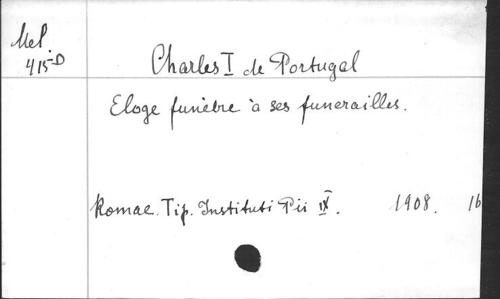 Mel.
415-D
Charles I de Portugal
Eloge funèbre à ses funerailles.
Romae. Tip. Instituti Pii IX. 1908. 16